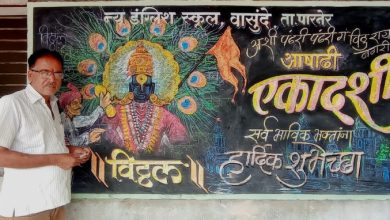 न्यू इंग्लिश स्कूल, वासुंदे ता.पारनेर
विठ्ठल
अशी पंढरी पंढरी गं विठु राया
नगरी
आषाढी
एकादशी
सर्व भाविक भक्तांना
हार्दिक शुभेच्छा
॥ विठ्ठल ॥